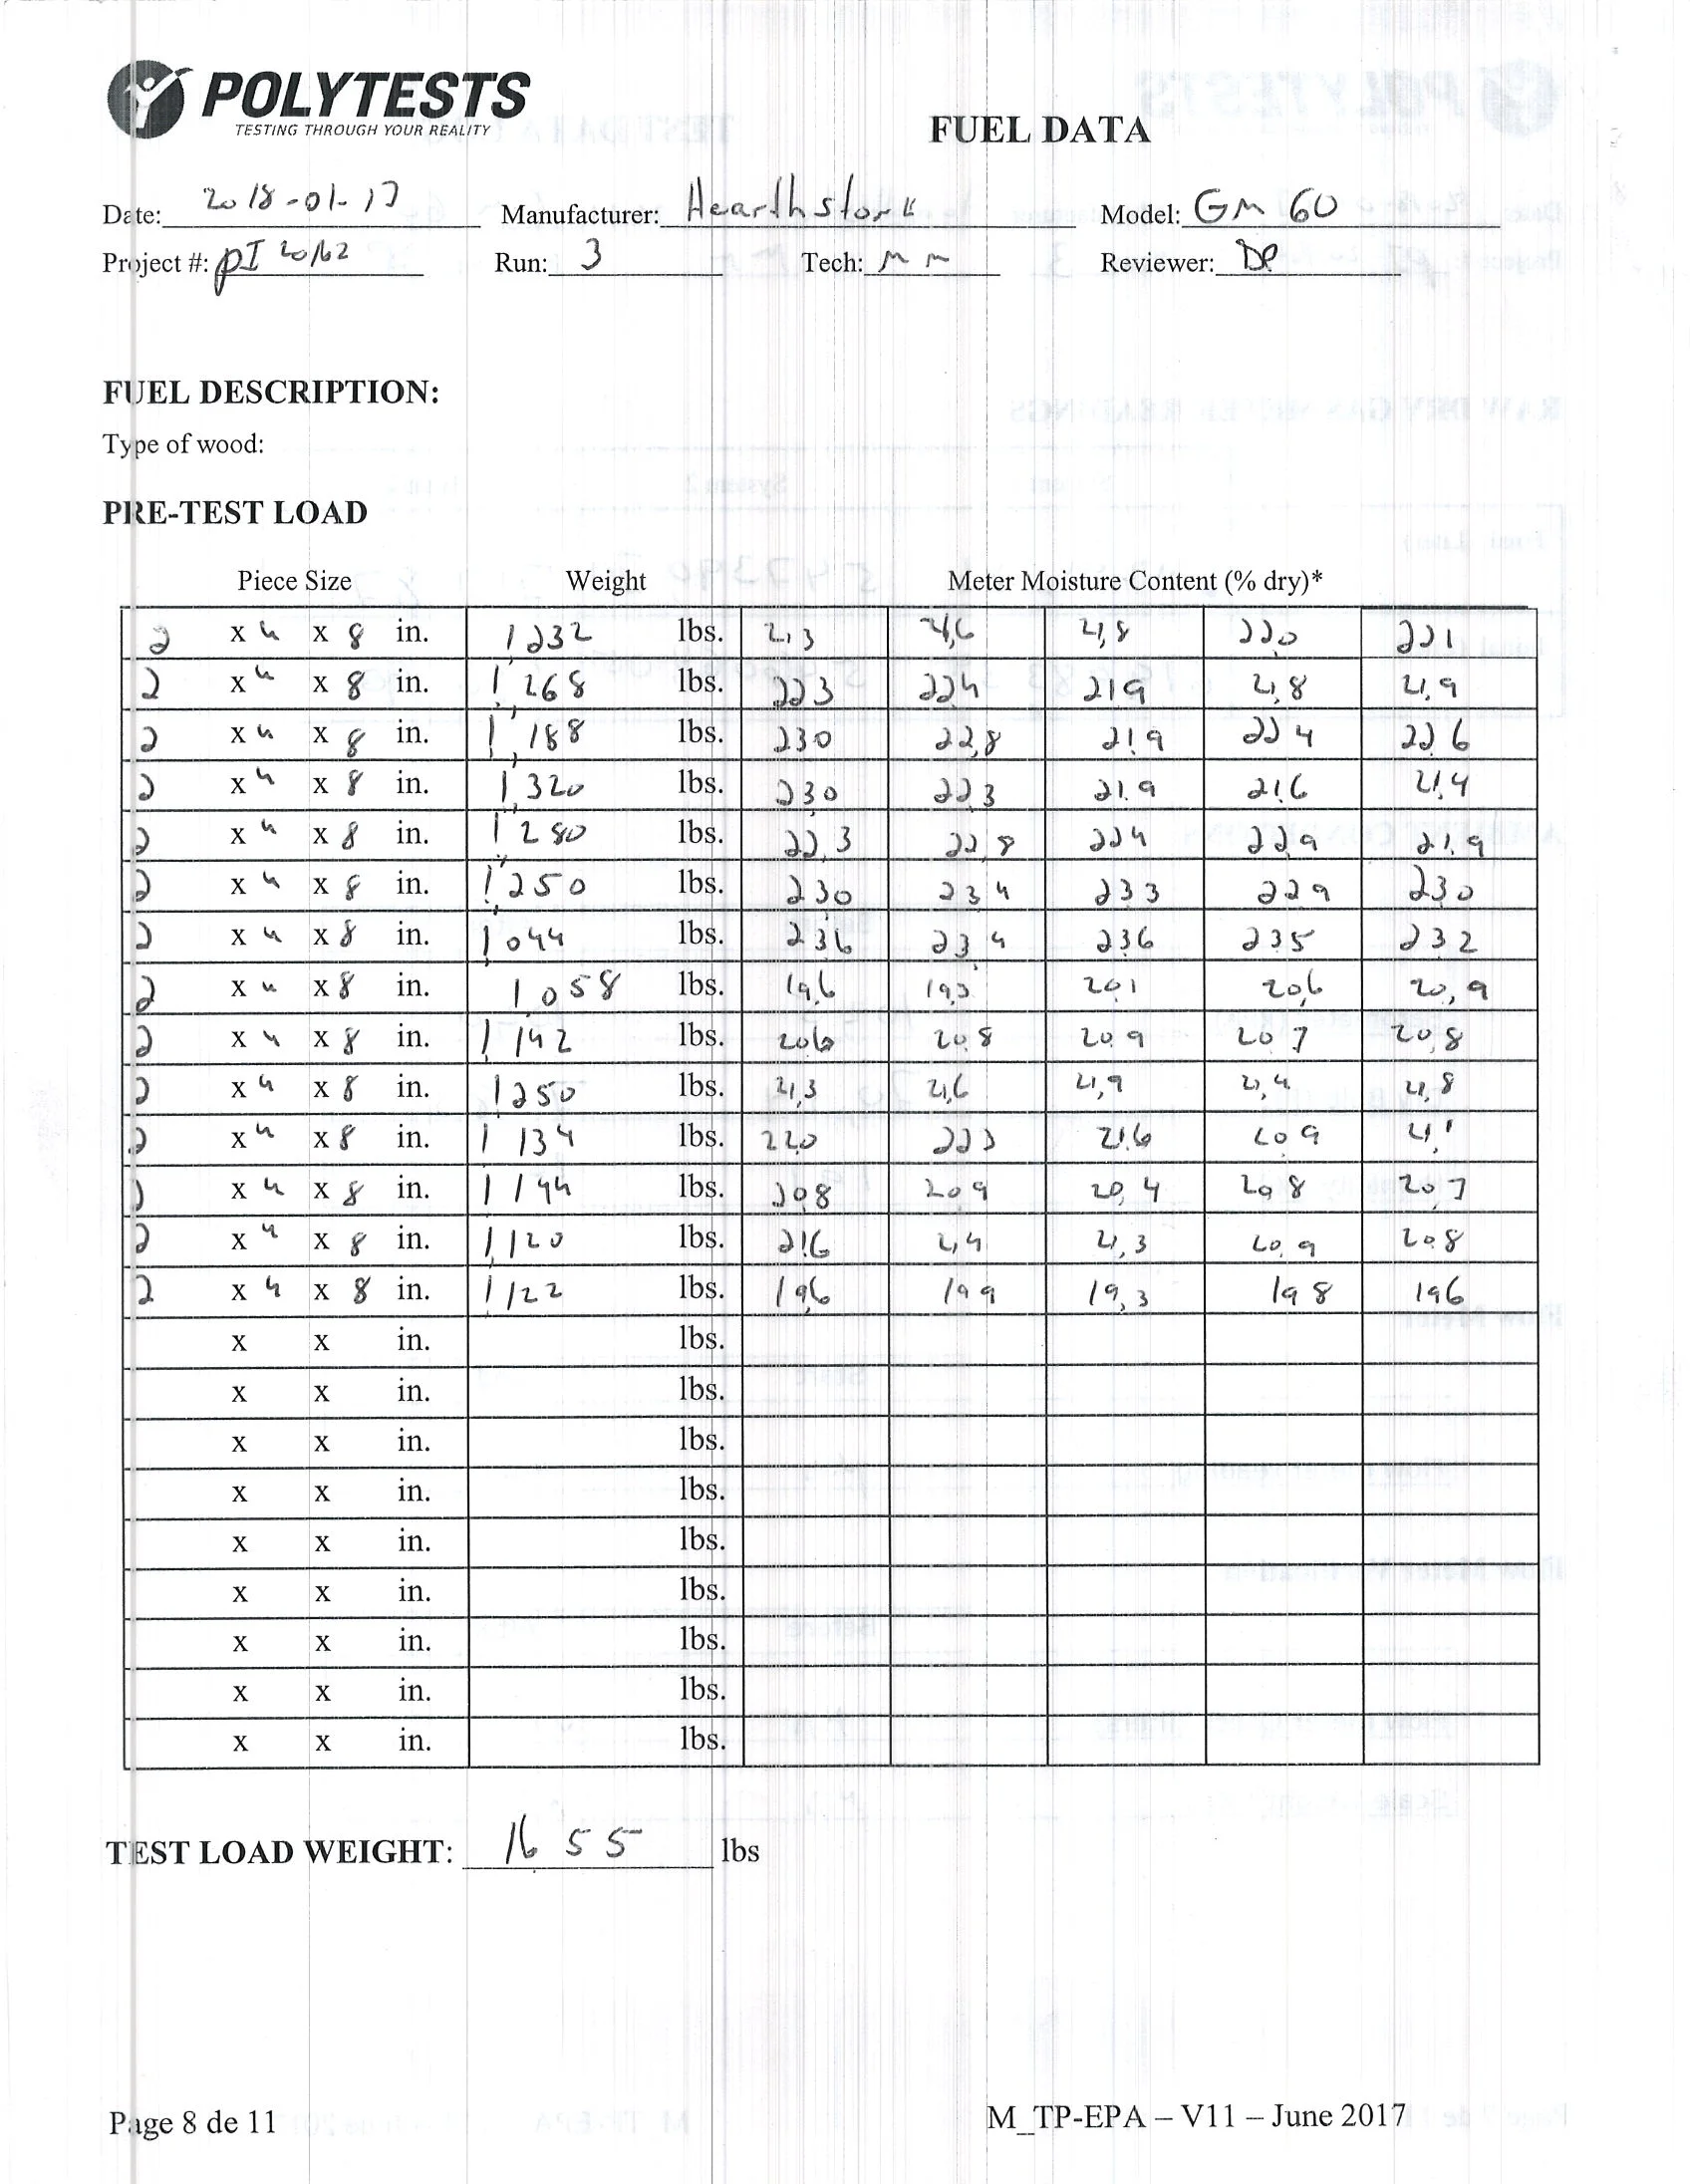 POLYTESTS
TESTING THROUGH YOUR REALITY
FUEL DATA
Date: 2018-01-17 Manufacturer: Hearthstone Model: GM 60
Project #: PI 20162 Run: 3 Tech: MM Reviewer: DP
FUEL DESCRIPTION:
Type of wood:
PRE-TEST LOAD
Piece Size Weight Meter Moisture Content (% dry)*
2 x 4 x 8 in. 1232 lbs. 21,3 21,6 21,8 22,0 221
2 x 4 x 8 in. 1,268 lbs. 223 224 219 21,8 21,9
2 x 4 x 8 in. 1,188 lbs. 230 22,8 21,9 224 22,6
2 x 4 x 8 in. 1,320 lbs. 230 22,3 21.9 21,6 21,4
2 x 4 x 8 in. 1,280 lbs. 22,3 22,8 224 22,9 21,9
2 x 4 x 8 in. 1,250 lbs. 230 23,4 233 229 230
2 x 4 x 8 in. 1,044 lbs. 236 23,4 236 235 232
2 x 4 x 8 in. 1,058 lbs. 19,6 19,3 20,1 20,6 20,9
2 x 4 x 8 in. 1142 lbs. 20,6 20,8 209 207 20,8
2 x 4 x 8 in. 1250 lbs. 21,3 21,6 21,9 21,4 21,8
2 x 4 x 8 in. 1134 lbs. 22,0 223 21,6 209 21,1
2 x 4 x 8 in. 1144 lbs. 208 209 20,4 20,8 20,7
2 x 4 x 8 in. 1,120 lbs. 21,6 21,4 21,3 20,9 20,8
2 x 4 x 8 in. 1122 lbs. 19,6 199 19,3 198 196
x x in. lbs.
x x in. lbs.
x x in. lbs.
x x in. lbs.
x x in. lbs.
x x in. lbs.
x x in. lbs.
x x in. lbs.
x x in. lbs.
TEST LOAD WEIGHT: 16 55 lbs
Page 8 de 11 M_TP-EPA – V11 – June 2017